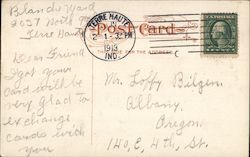 Blanche Ward
2037 North
Terre Haute
TERRE HAUTE
2 - 1913
IND.
Post Card
THE ADDRESS
Dear Friend
I got your
card will be
very glad to
exchange
cards with
you
Mr. Loffy Bilgen.
Albany,
Oregon.
140, E, 4th, St.